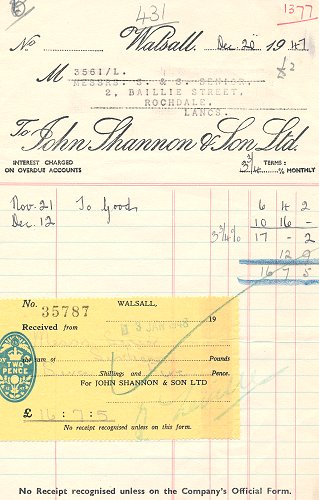 431
1377
No Walsall. Dec. 20 1947
M 3561/L.
MESSRS. S. & S. SENIOR.
2, BAILLIE STREET,
ROCHDALE.
LANCS.
To John Shannon & Son Ltd.
INTEREST CHARGED ON OVERDUE ACCOUNTS
3 3/4 TERMS: % MONTHLY
Nov. 21 To Goods 6 4 2
Dec. 12 10 16 -
3 3/4 % 17 - 2
12 9
16 7 5
No. 35787 WALSALL,
Received from 3 JAN 1948 19
TWO PENCE
Sum of Pounds
Shillings and Pence.
For JOHN SHANNON & SON LTD
£ 16 : 7 : 5
No receipt recognised unless on this form.
No Receipt recognised unless on the Company's Official Form.